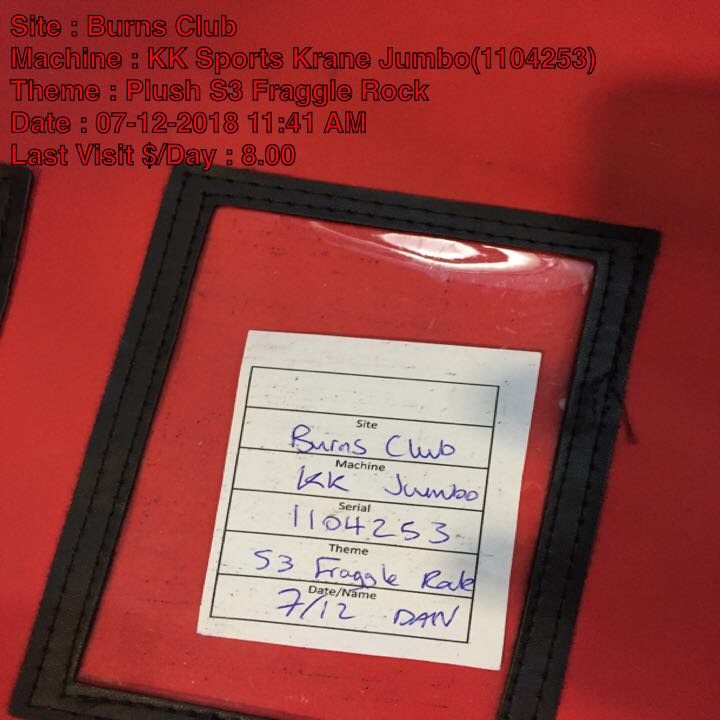 Site : Burns Club
Machine : KK Sports Krane Jumbo(1104253)
Theme : Plush S3 Fraggle Rock
Date : 07-12-2018 11:41 AM
Last Visit $/Day : 8.00
Site
Burns Club
Machine
KK Jumbo
Serial
1104253
Theme
S3 Fraggle Rock
Date/Name
7/12 DAN